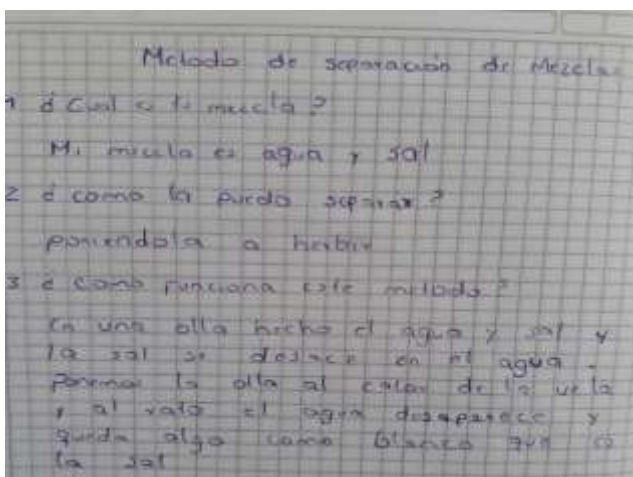 Metodo de separación de Mezclas
1 ¿Cual es tu mezcla?
Mi mezcla es agua y sal
2 ¿como la puedo separar?
poniendola a herbir
3 ¿como funciona este metodo?
en una olla hecho el agua y sal y
la sal se desace en el agua.
Ponemos la olla al calor de la vela
y al rato el agua desaparece y
queda algo como blanco que es
la sal